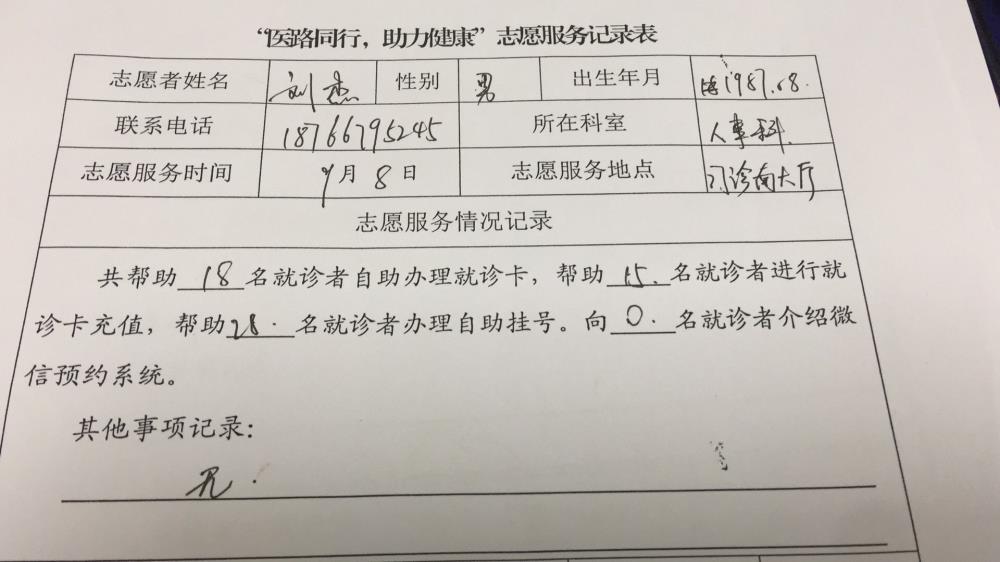 “医路同行，助力健康”志愿服务记录表
志愿者姓名 刘杰 性别 男 出生年月 1987.08.
联系电话 18766795245 所在科室 人事科.
志愿服务时间 9月8日 志愿服务地点 门诊南大厅
志愿服务情况记录
共帮助18名就诊者自助办理就诊卡，帮助15.名就诊者进行就
诊卡充值，帮助28.名就诊者办理自助挂号。向0.名就诊者介绍微
信预约系统。
其他事项记录：
无.